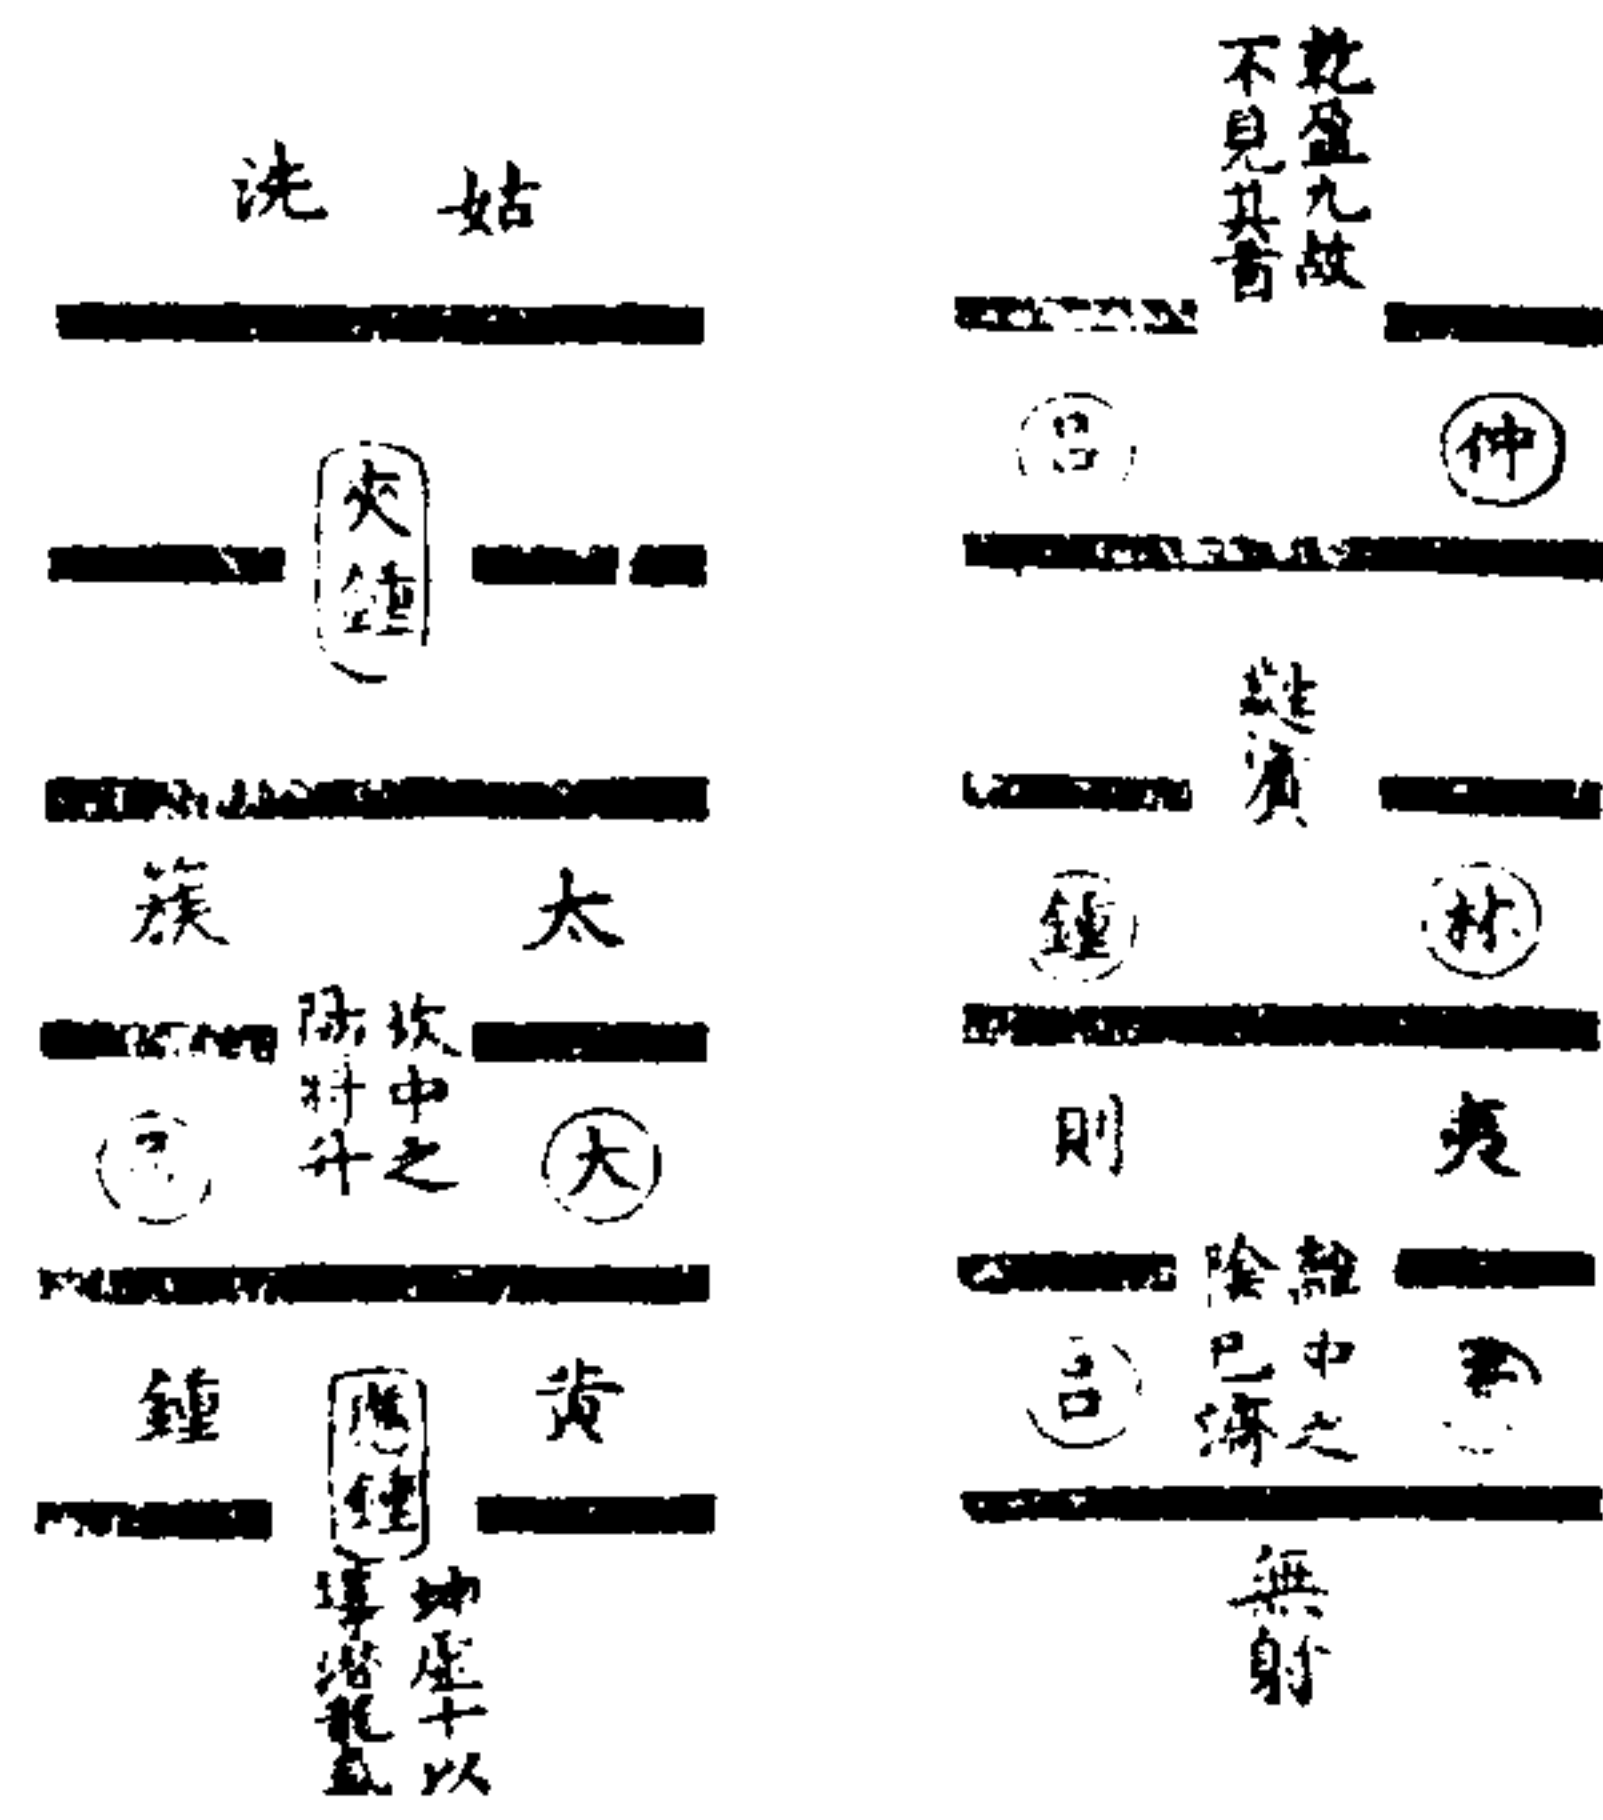 乾盈九故
不見其首
仲呂
蕤賓
林鍾
夷則
離中之
陰已
無射
姑洗
夾鍾
太蔟
坎中之
陽升
大
黃鍾
應鍾
坤虛十以
潛龍